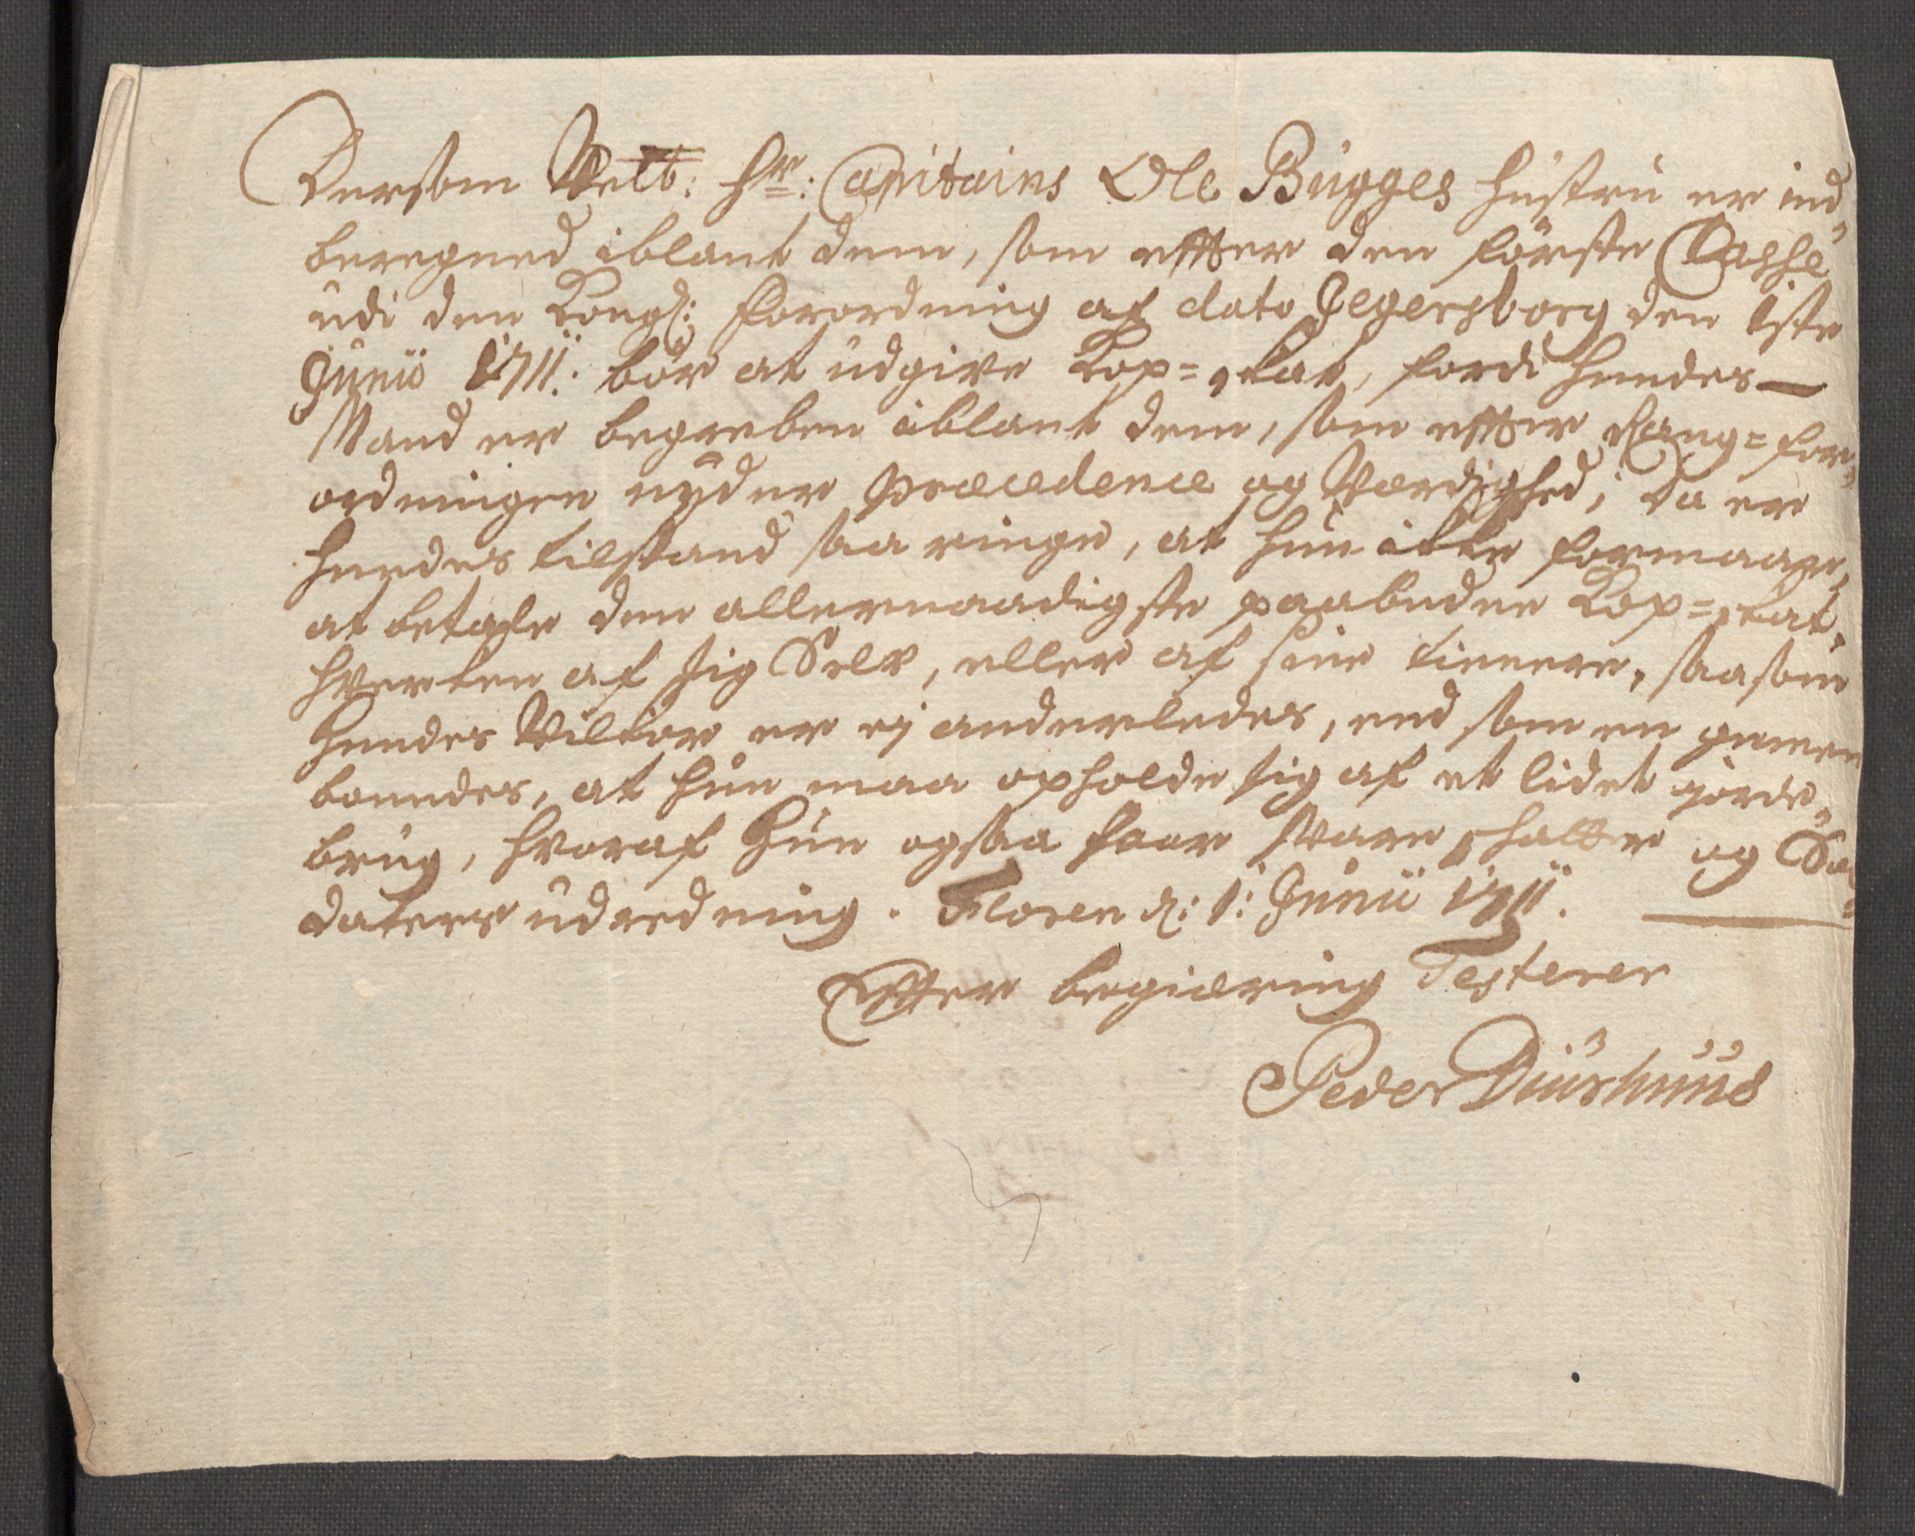 Dersom Welb: Hr: Capitains Ole Bügges Hüstrü er ind-
beregned iblant dem, som effter den förste Classe
üdi den Kongl: Forordning af dato Jegersborg den 1ste
Junii 1711. bör at üdgive Kop-skat, fordi Hendes
Mand er begreben iblant dem, som effter Rang-for-
ordningen nyder Præcedence og Værdighed; Da er
Hendes tilstand saa ringe, at Hün icke formaaer,
at betale den allernaadigste paabudne Kop-skat,
hverken af sig Selv, eller af sine tienere, saasom
Hendes Vilkor er ej anderledes, end som en gemeen
bondes, at hün maa opholde sig af et lidet jorde-
brüg, hvoraf Hün ogsaa faar svare skatter og Sol-
daters üdredning. Floren d: 1: Junii 1711.
Effter begiæring Testerer
Peder Diürhuus